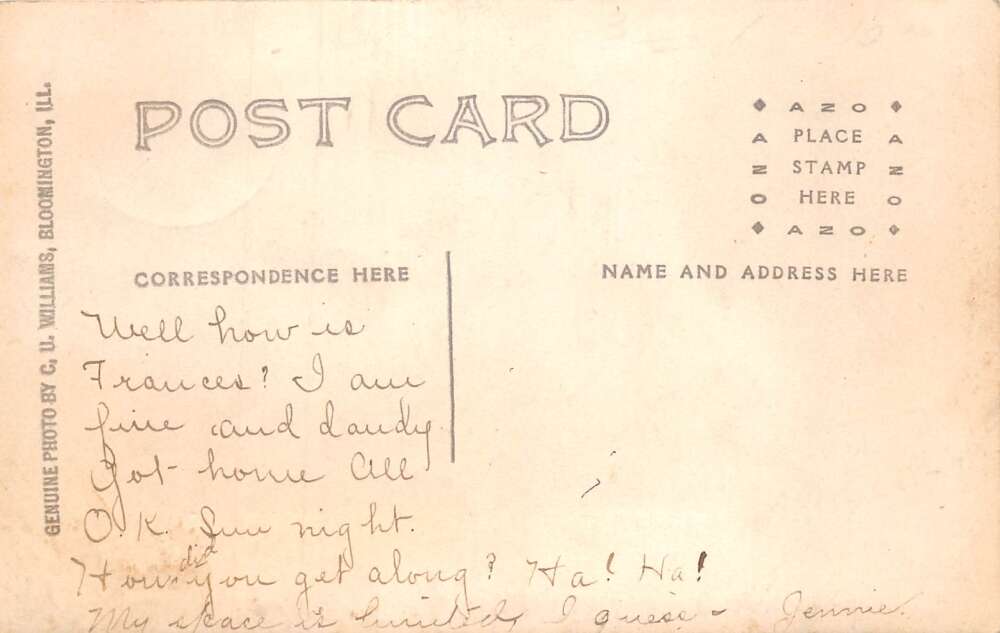 GENUINE PHOTO BY C. U. WILLIAMS, BLOOMINGTON, ILL.
POST CARD
AZO
A PLACE A
Z STAMP Z
O HERE O
AZO
CORRESPONDENCE HERE
NAME AND ADDRESS HERE
Well how is
Frances? I am
fine and dandy
Got home All
O.K. Sun night.
How did you get along? Ha! Ha!
My space is limited, I guess - Jennie.